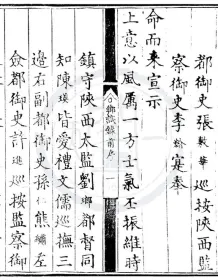 都御史張敷華巡按陝西監
察御史李瀚寔奉
命而来宣示
上意以風厲一方士氣丕振維時
鄉試錄前序
鎮守陝西太監劉瑯都督同
知陳瑛皆愛禮文儒巡撫三
邊右副都御史孫仁熊繡左
僉都御史許進巡按監察御